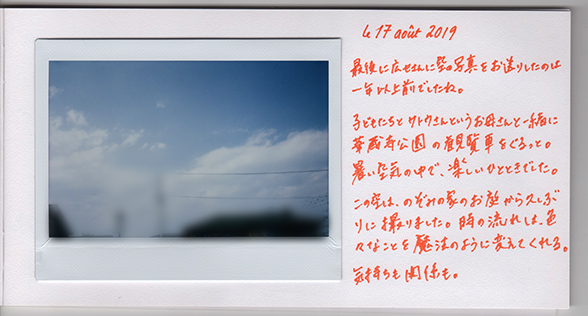 le 17 août 2019
最後に広せさんに空の写真をお送りしたのは
一年以上前でしたね。
子どもたちとサトウさんというお母さんと一緒に
華蔵寺公園の観覧車をぐるっと。
暑い空気の中で、楽しいひとときでした。
この空は、のぞみの家のお庭から久しぶ
りに撮りました。時の流れは、色
々なことを魔法のように変えてくれる。
気持ちも関係も。